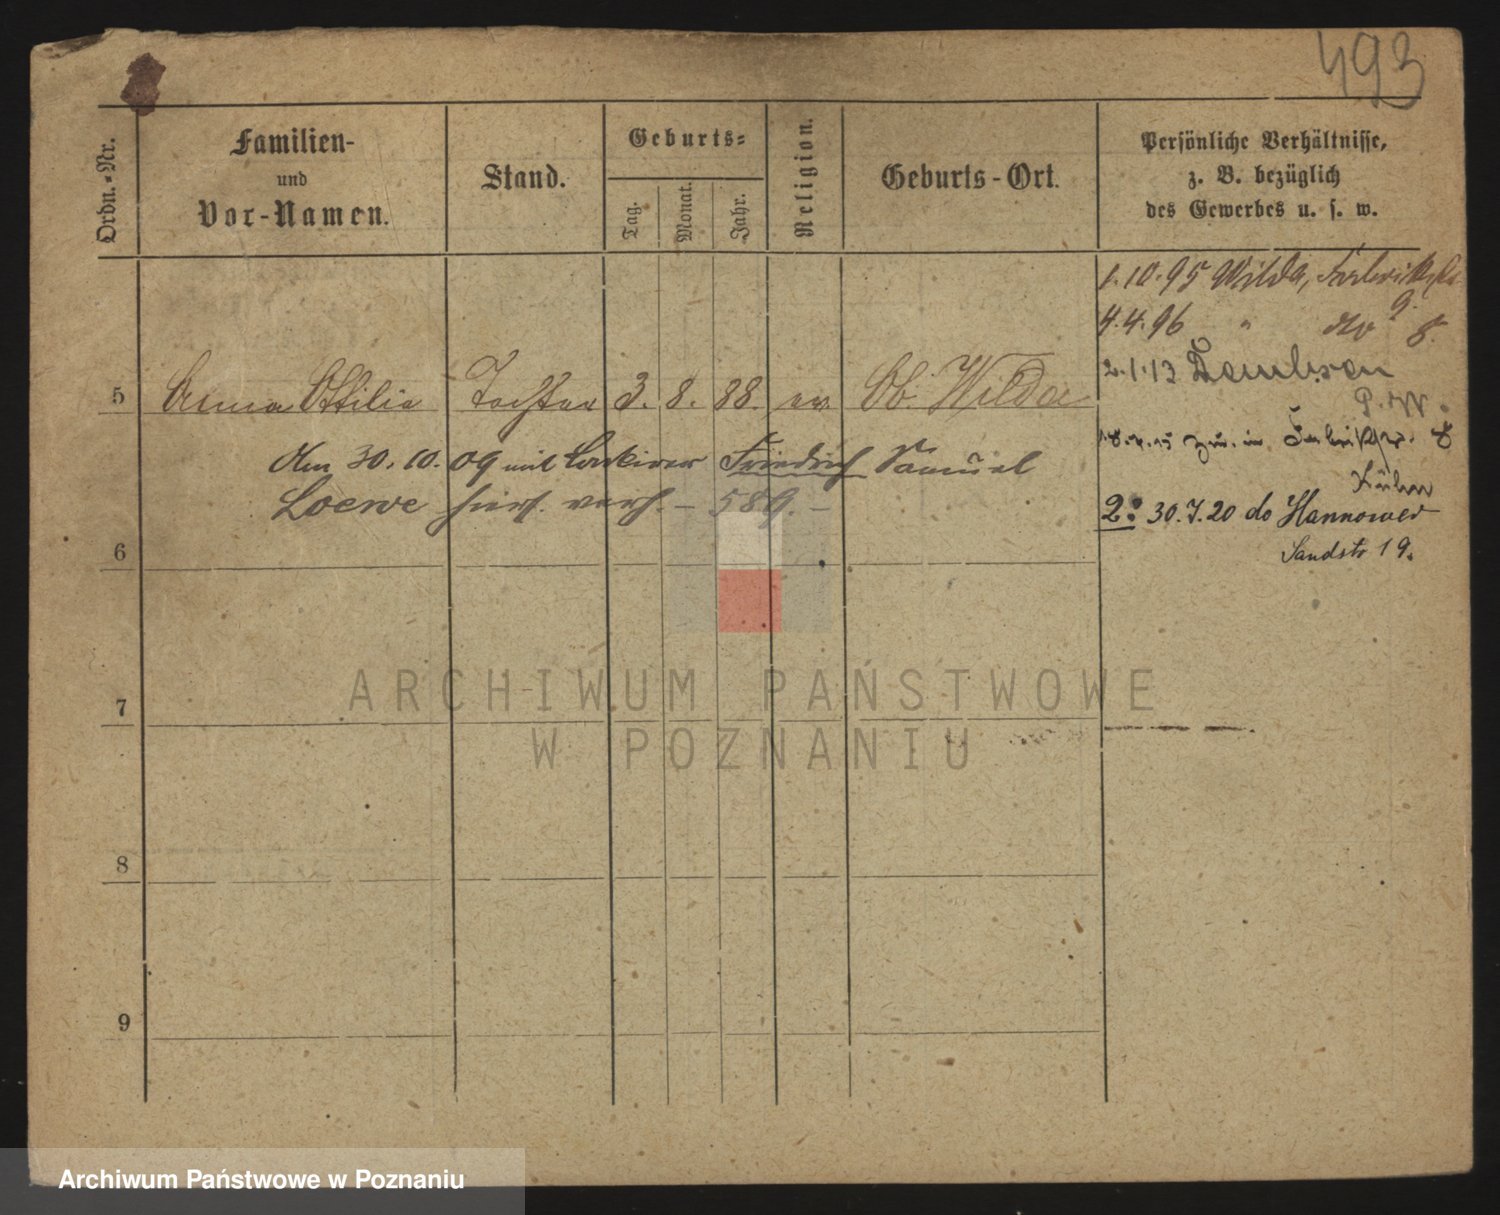 493
Ordn.-Nr.
Familien-
und
Vor-Namen.
Stand.
Geburts-
Tag.
Monat.
Jahr.
Religion.
Geburts-Ort.
Persönliche Verhältnisse,
z. B. bezüglich
des Gewerbes u. s. w.
1.10.95 Wilda, Fabrikstr.
9.
4.4.96 " do 8.
2.1.13 Dembsen
P. W.
5 Anna Ottilie Tochter 3. 8. 88. ev. Ob. Wilda
zur. in Fabrikstr. 8
Kühn
den 30. 10. 09 mit Lackirer Friedrich Samuel
Loewe hier verh. – 589. –
2: 30.7.20 do Hannover
Sandstr 19.
6
7
8
9
ARCHIWUM PAŃSTWOWE
W POZNANIU
Archiwum Państwowe w Poznaniu